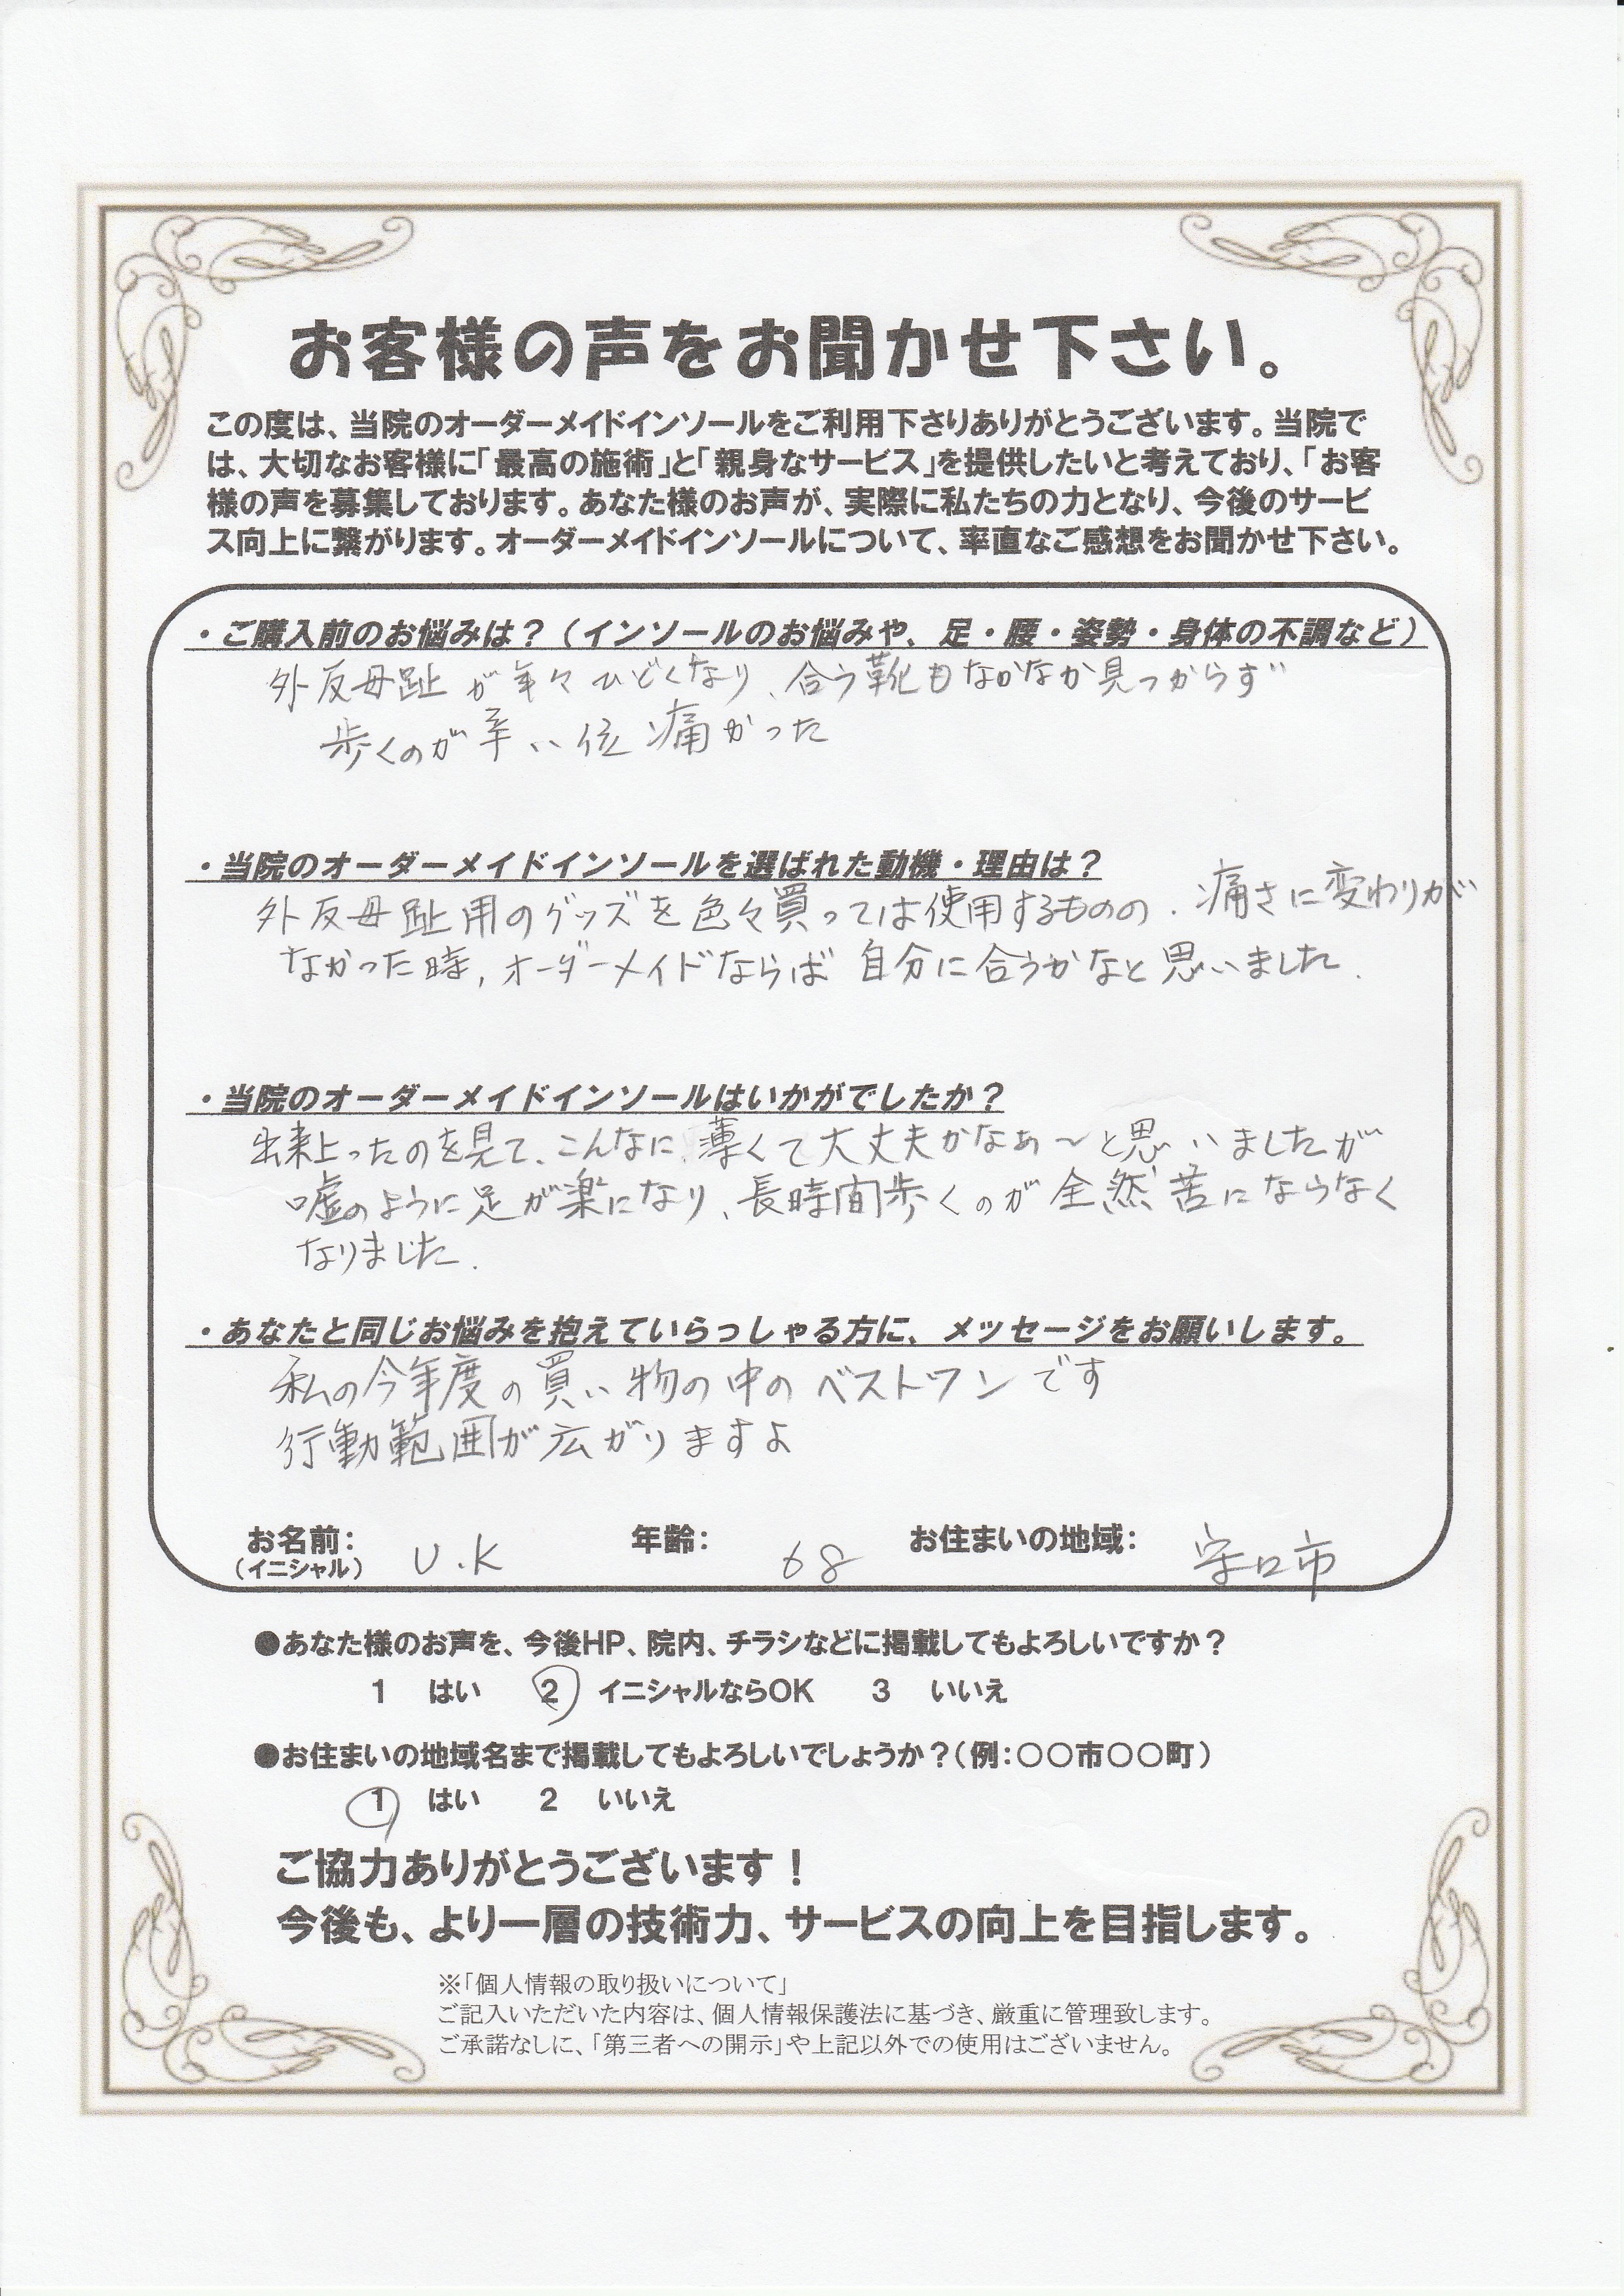 お客様の声をお聞かせ下さい。
この度は、当院のオーダーメイドインソールをご利用下さりありがとうございます。当院で
は、大切なお客様に「最高の施術」と「親身なサービス」を提供したいと考えており、「お客
様の声を募集しております。あなた様のお声が、実際に私たちの力となり、今後のサービ
ス向上に繋がります。オーダーメイドインソールについて、率直なご感想をお聞かせ下さい。
・ご購入前のお悩みは？（インソールのお悩みや、足・腰・姿勢・身体の不調など）
外反母趾が年々ひどくなり、合う靴もなかなか見つからず
歩くのが辛い位痛かった
・当院のオーダーメイドインソールを選ばれた動機・理由は？
外反母趾用のグッズを色々買っては使用するものの、痛さに変わりが
なかった時、オーダーメイドならば自分に合うかなと思いました。
・当院のオーダーメイドインソールはいかがでしたか？
出来上ったのを見て、こんなに薄くて大丈夫かなぁ～と思いましたが
嘘のように足が楽になり、長時間歩くのが全然苦にならなく
なりました。
・あなたと同じお悩みを抱えていらっしゃる方に、メッセージをお願いします。
私の今年度の買い物の中のベストワンです
行動範囲が広がりますよ
お名前： U.K 年齢： 68 お住まいの地域： 守口市
（イニシャル）
●あなた様のお声を、今後HP、院内、チラシなどに掲載してもよろしいですか？
1 はい 2 イニシャルならOK 3 いいえ
●お住まいの地域名まで掲載してもよろしいでしょうか？（例：〇〇市〇〇町）
1 はい 2 いいえ
ご協力ありがとうございます！
今後も、より一層の技術力、サービスの向上を目指します。
※「個人情報の取り扱いについて」
ご記入いただいた内容は、個人情報保護法に基づき、厳重に管理致します。
ご承諾なしに、「第三者への開示」や上記以外での使用はございません。